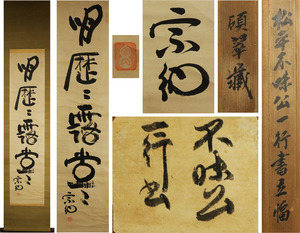 明歴々露堂々
宗納
明歴々露堂々
宗納
宗納
碩翠蔵
松平不昧公一行書立幅
不昧公
一行書